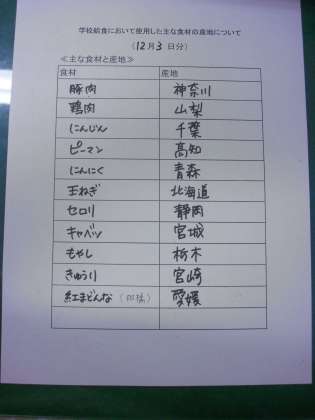 学校給食において使用した主な食材の産地について
（12月3日分）
≪主な食材と産地≫
食材 産地
豚肉 神奈川
鶏肉 山梨
にんじん 千葉
ピーマン 高知
にんにく 青森
玉ねぎ 北海道
セロリ 静岡
キャベツ 宮城
もやし 栃木
きゅうり 宮崎
紅まどんな 愛媛